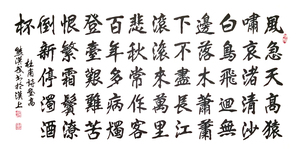 風急天高猿
嘯哀渚清沙
白鳥飛迴無
邊落木蕭蕭
下不盡長江
滾滾來萬里
悲秋常作客
百年多病獨
登臺艱難苦
恨繁霜鬢潦
倒新停濁酒
杯
杜甫詩登高
於漢上